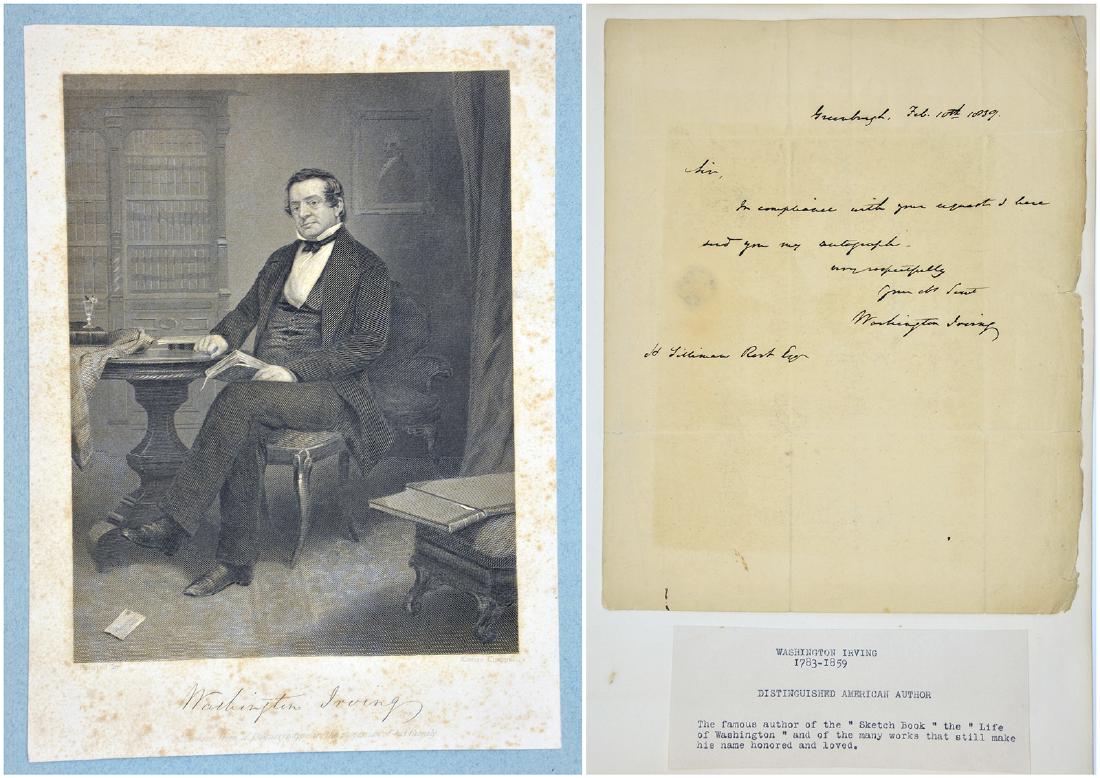 Alonzo Chappel
Washington Irving
Greenburgh, Feb. 10th 1839.
Sir,
In compliance with your request I here
send you my autograph.
very respectfully
Your Ob Servt
Washington Irving
H Silliman Esqr
WASHINGTON IRVING
1783-1859
DISTINGUISHED AMERICAN AUTHOR
The famous author of the " Sketch Book " the " Life
of Washington " and of the many works that still make
his name honored and loved.